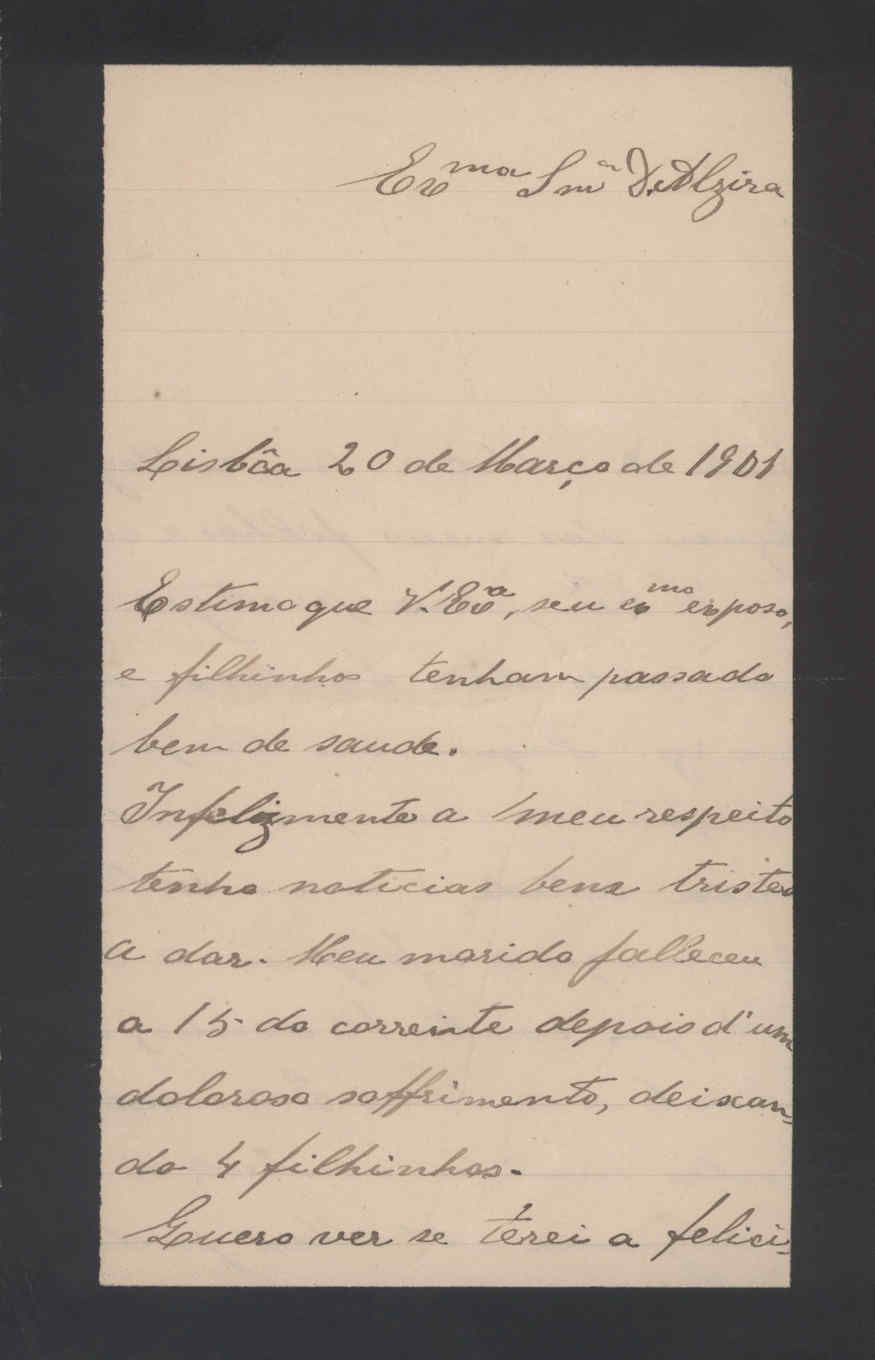 Exma Snra D. Alzira
Lisbôa 20 de Março de 1901
Estimo que V. Exa, seu exmo esposo,
e filhinhos tenham passado
bem de saude.
Infelizmente a meu respeito
tenho noticias bem tristes
a dar. Meu marido falleceu
a 15 do corrente depois d'um
doloroso soffrimento, deixan-
do 4 filhinhos.
Quero ver se terei a felici-